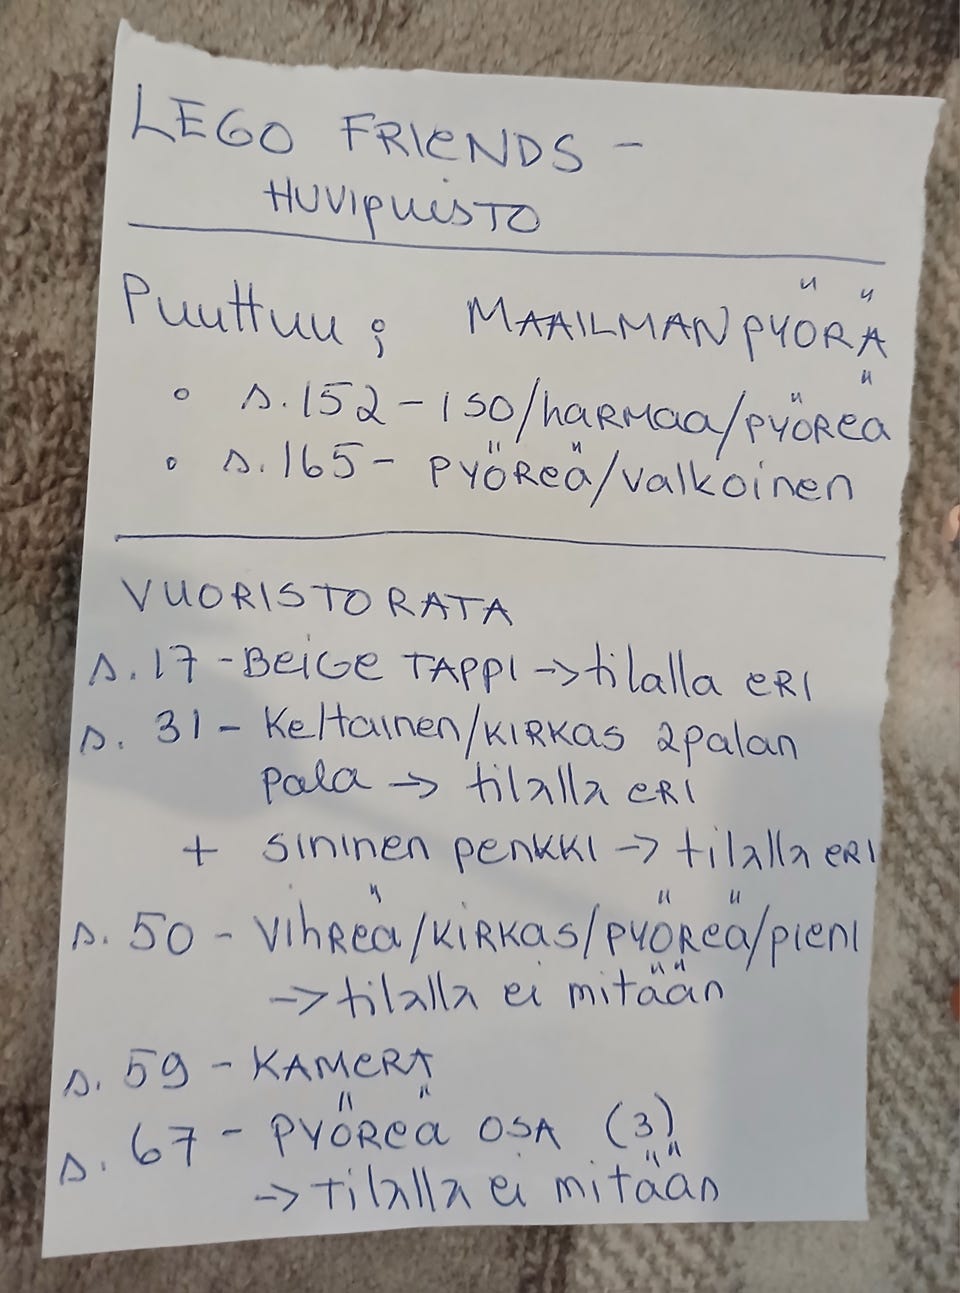 LEGO FRIENDS -
HUVIPUISTO
Puuttuu ; MAAILMANPYÖRÄ
• s.152 - ISO/HARMAA/PYÖREÄ
• s.165 - PYÖREÄ/VALKOINEN
VUORISTORATA
s. 17 - BEIGE TAPPI -> tilalla ERI
s. 31 - Keltainen/KIRKAS 2palan
pala -> tilalla ERI
+ SININEN PENKKI -> tilalla ERI
s. 50 - VIHREÄ/KIRKAS/PYÖREÄ/PIENI
-> tilalla ei mitään
s. 59 - KAMERA
s. 67 - PYÖREÄ OSA (3)
-> tilalla ei mitään